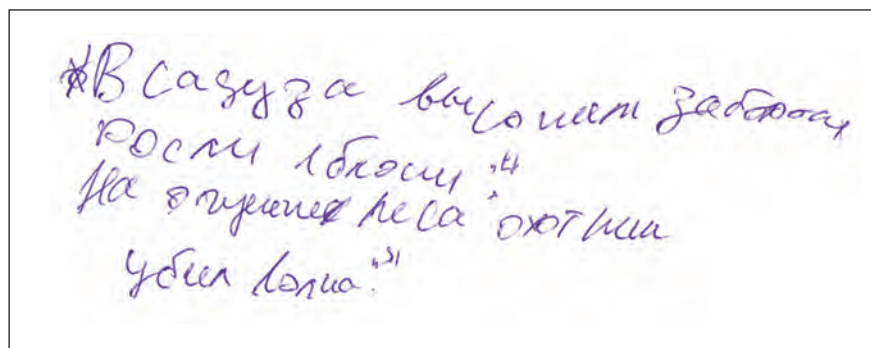 В саду за высоким забором
Росли яблоки"
На опушке леса охотник
убил волка."